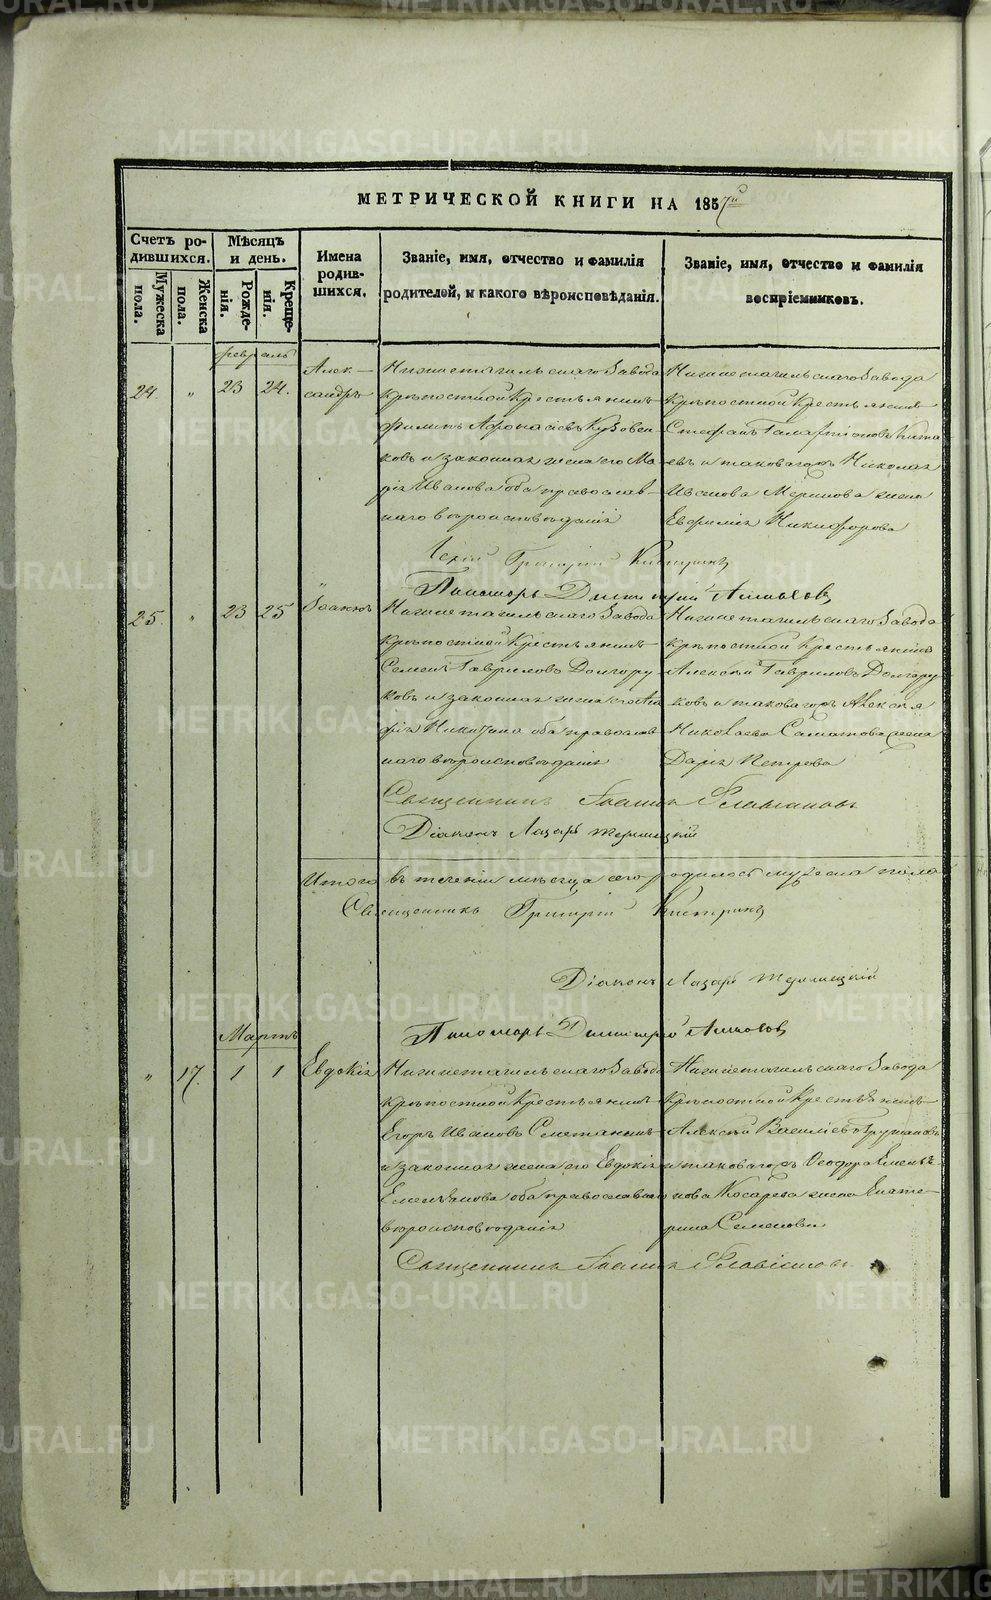 МЕТРИЧЕСКОЙ КНИГИ НА 1857й
Счетъ ро-
дившихся.
Мужеска
пола.
Женска
пола.
Мѣсяцъ
и день.
Рожде-
нія.
Креще-
нія.
Имена
родив-
шихся.
Званіе, имя, отчество и фамилія
родителей, и какого вѣроисповѣданія.
Званіе, имя, отчество и фамилія
воспріемниковъ.
февраль
24. " 23 24.
Алек-
сандръ
Нижнетагильскаго Завода
крѣпостной крестьянинъ
Филипъ Афонасіевъ
и законная жена его Ма-
рія Иванова оба православ-
наго вѣроисповѣданія
Нижнетагильскаго Завода
крѣпостной крестьянинъ
Стефанъ
и таковагожъ Николая
Иванова жена
Евфимія Никифорова
Григорій
Пономорь Димитрій
25. " 23 25
Іоаннъ
Нижнетагильскаго Завода
крѣпостной крестьянинъ
Семенъ Гавриловъ Долгору-
ковъ и законная жена его
Никитина оба православ
наго вѣроисповѣданія
Нижнетагильскаго Завода
крѣпостной крестьянинъ
Алексѣй Гавриловъ Долгору-
ковъ и таковагожъ Алексѣя
Николаева жена
Дарія Петрова
Священникъ Іоаннъ
Діаконъ Лазарь
Итого въ теченіи мѣсяца сего родилось мужеска пола
Священникъ Григорій
Діаконъ Лазарь
Пономорь Димитрій
Мартъ
" 17. 1 1
Евдокія
Нижнетагильскаго Завода
крѣпостной крестьянинъ
Егоръ Ивановъ Сметанинъ
и законная жена его Евдокія
Емельянова оба православнаго
вѣроисповѣданія
Нижнетагильскаго Завода
крѣпостной крестьянинъ
Алексѣй Василіевъ
и таковагожъ Ѳеодора Емелья-
нова Косарева жена Екате-
рина Семенова
Священникъ Іоаннъ
METRIKI.GASO-URAL.RU